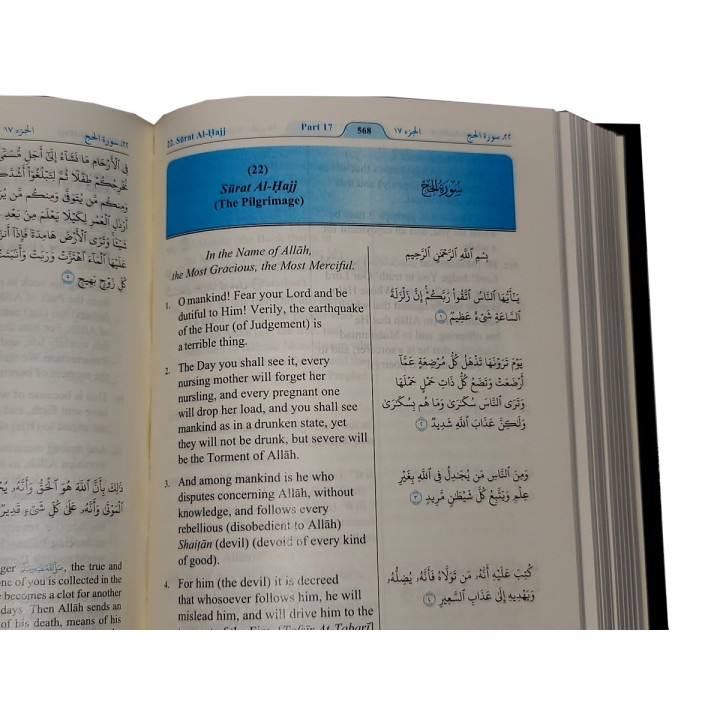 الجزء ١٧
٢٢. سورة الحج
فِى ٱلْأَرْحَامِ مَا نَشَآءُ إِلَىٰٓ أَجَلٍ مُّسَمًّى
نُخْرِجُكُمْ طِفْلًا ثُمَّ لِتَبْلُغُوٓا۟ أَشُدَّكُمْ
وَمِنكُم مَّن يُتَوَفَّىٰ وَمِنكُم مَّن يُرَدُّ
أَرْذَلِ ٱلْعُمُرِ لِكَيْلَا يَعْلَمَ مِنۢ بَعْدِ
شَيْـًٔا وَتَرَى ٱلْأَرْضَ هَامِدَةً فَإِذَآ أَنزَلْنَا
عَلَيْهَا ٱلْمَآءَ ٱهْتَزَّتْ وَرَبَتْ وَأَنۢبَتَتْ
كُلِّ زَوْجٍۭ بَهِيجٍ ٥
ذَٰلِكَ بِأَنَّ ٱللَّهَ هُوَ ٱلْحَقُّ وَأَنَّهُۥ
ٱلْمَوْتَىٰ وَأَنَّهُۥ عَلَىٰ كُلِّ شَىْءٍ قَدِيرٌ
the true and
one of you is collected in the
becomes a clot for another
days. Then Allāh sends an
of his death, means of his
22. Sūrat Al-Ḥajj
Part 17
568
الجزء ١٧
٢٢. سورة الحج
(22)
Sūrat Al-Ḥajj
(The Pilgrimage)
سُورَةُ الحَجِّ
In the Name of Allāh,
the Most Gracious, the Most Merciful.
بِسْمِ ٱللَّهِ ٱلرَّحْمَٰنِ ٱلرَّحِيمِ
1. O mankind! Fear your Lord and be
dutiful to Him! Verily, the earthquake
of the Hour (of Judgement) is
a terrible thing.
يَـٰٓأَيُّهَا ٱلنَّاسُ ٱتَّقُوا۟ رَبَّكُمْ ۚ إِنَّ زَلْزَلَةَ
ٱلسَّاعَةِ شَىْءٌ عَظِيمٌ ١
2. The Day you shall see it, every
nursing mother will forget her
nursling, and every pregnant one
will drop her load, and you shall see
mankind as in a drunken state, yet
they will not be drunk, but severe will
be the Torment of Allāh.
يَوْمَ تَرَوْنَهَا تَذْهَلُ كُلُّ مُرْضِعَةٍ عَمَّآ
أَرْضَعَتْ وَتَضَعُ كُلُّ ذَاتِ حَمْلٍ حَمْلَهَا
وَتَرَى ٱلنَّاسَ سُكَـٰرَىٰ وَمَا هُم بِسُكَـٰرَىٰ
وَلَـٰكِنَّ عَذَابَ ٱللَّهِ شَدِيدٌ ٢
3. And among mankind is he who
disputes concerning Allāh, without
knowledge, and follows every
rebellious (disobedient to Allāh)
Shaiṭān (devil) (devoid of every kind
of good).
وَمِنَ ٱلنَّاسِ مَن يُجَـٰدِلُ فِى ٱللَّهِ بِغَيْرِ
عِلْمٍ وَيَتَّبِعُ كُلَّ شَيْطَـٰنٍ مَّرِيدٍ ٣
4. For him (the devil) it is decreed
that whosoever follows him, he will
mislead him, and will drive him to the
of the Fire. [Tafsīr At-Ṭabarī]
كُتِبَ عَلَيْهِ أَنَّهُۥ مَن تَوَلَّاهُ فَأَنَّهُۥ يُضِلُّهُۥ
وَيَهْدِيهِ إِلَىٰ عَذَابِ ٱلسَّعِيرِ ٤